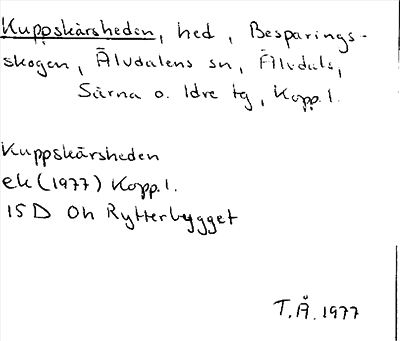 Kuppskärsheden, hed, Besparings-
skogen, Älvdalens sn, Älvdals,
Särna o. Idre tg, Kopp. l.
Kuppskärsheden
ek (1977) Kopp. l.
15 D 0h Rytterbygget
T.Å. 1977